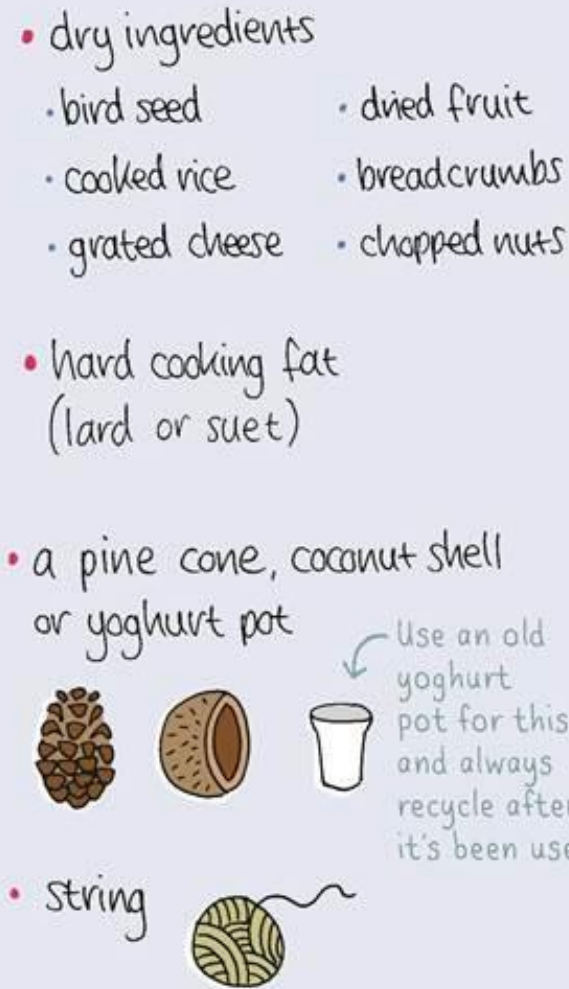 • dry ingredients
· bird seed
· cooked rice
· grated cheese
· dried fruit
· breadcrumbs
· chopped nuts
• hard cooking fat
(lard or suet)
• a pine cone, coconut shell
or yoghurt pot
Use an old
yoghurt
pot for this
and always
recycle after
it's been use
• string